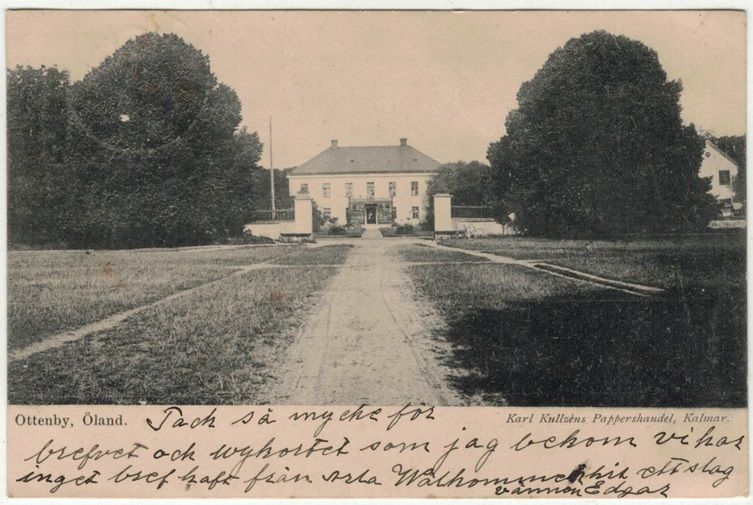 Ottenby, Öland.
Karl Kullzéns Pappershandel, Kalmar.
Tack så mycke för
brefvet och wykortet som jag bekom vi har
inget bref haft från Arla Walkommen hit ett slag
vännen Edgar